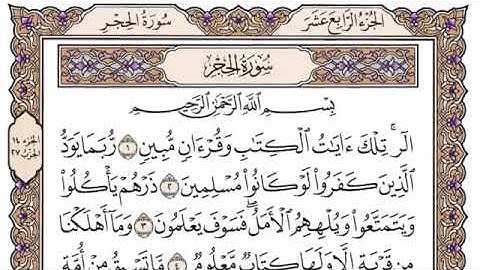 سُورَةُ الحِجْرِ
الجُزْءُ الرَّابِعَ عَشَرَ
سُورَةُ الحِجْرِ
بِسْمِ اللَّهِ الرَّحْمَٰنِ الرَّحِيمِ
الٓرۚ تِلْكَ ءَايَٰتُ ٱلْكِتَٰبِ وَقُرْءَانٖ مُّبِينٖ ١ رُّبَمَا يَوَدُّ
ٱلَّذِينَ كَفَرُواْ لَوْ كَانُواْ مُسْلِمِينَ ٢ ذَرْهُمْ يَأْكُلُواْ
وَيَتَمَتَّعُواْ وَيُلْهِهِمُ ٱلْأَمَلُۖ فَسَوْفَ يَعْلَمُونَ ٣ وَمَآ أَهْلَكْنَا
مِن قَرْيَةٍ إِلَّا وَلَهَا كِتَابٞ مَّعْلُومٞ ٤ مَّا تَسْبِقُ مِنْ أُمَّةٍ
الجزء ١٤
الحزب ٢٧